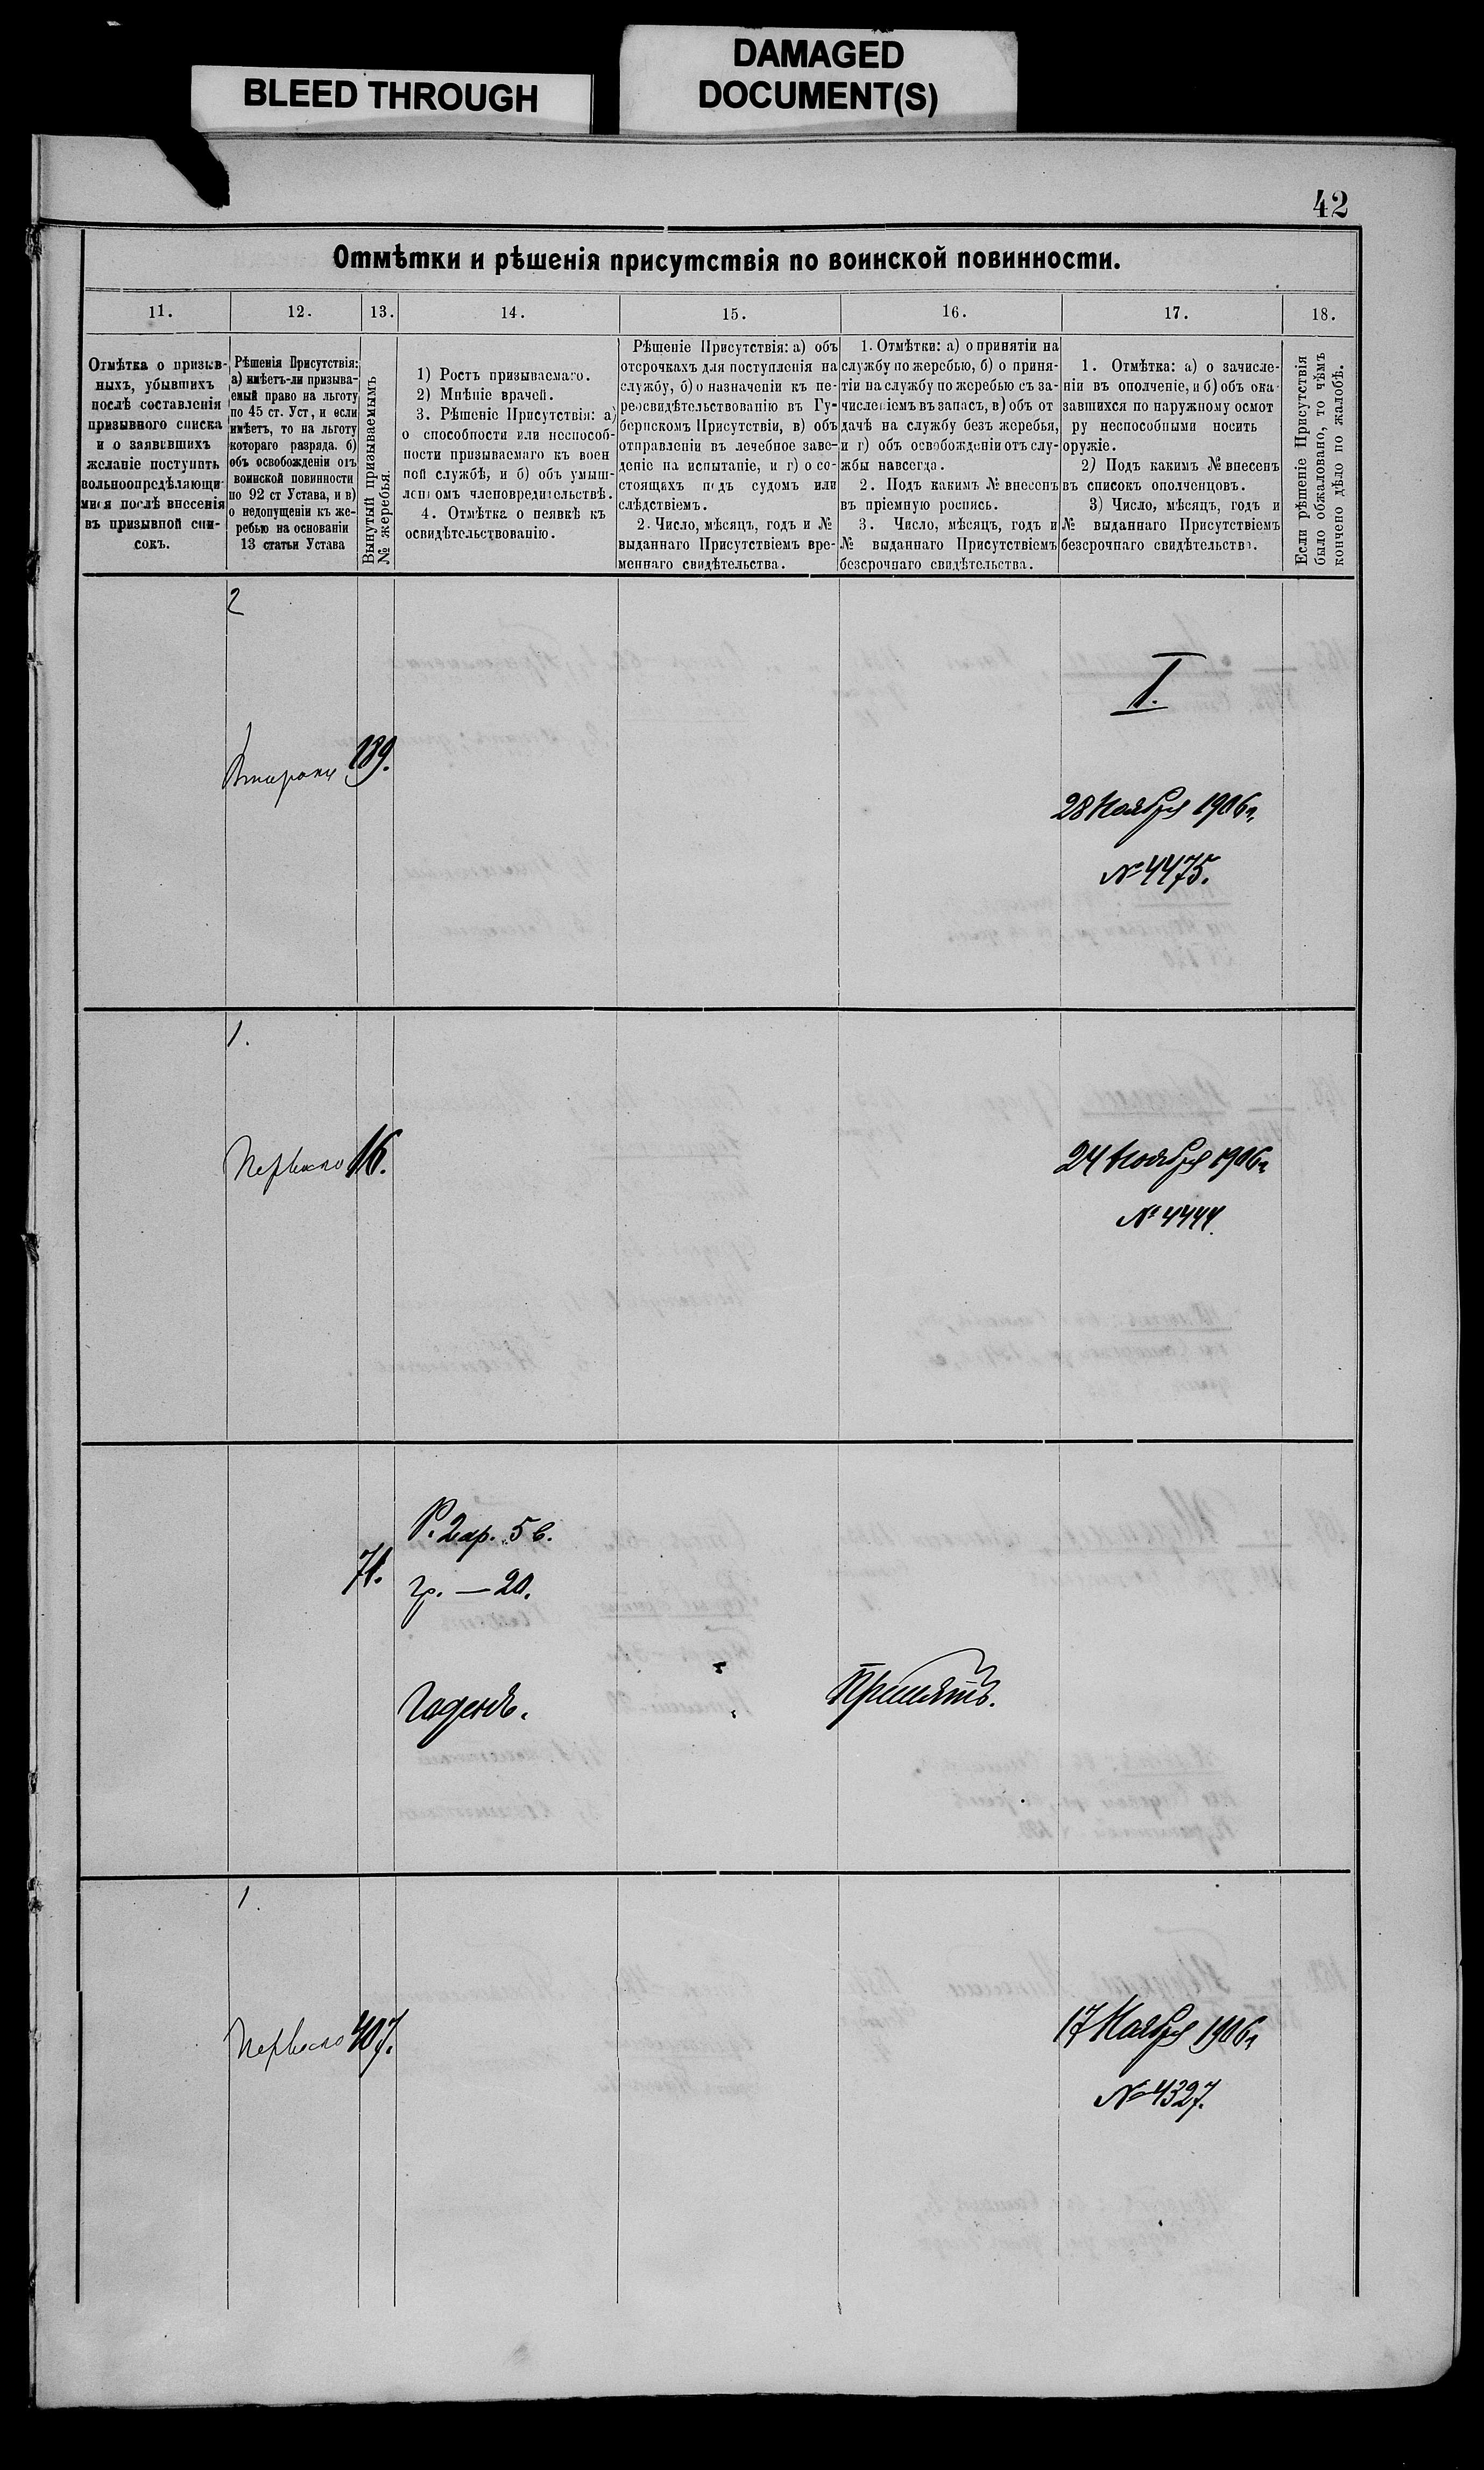 BLEED THROUGH
DAMAGED
DOCUMENT(S)
42
Отмѣтки и рѣшенія присутствія по воинской повинности.
11.
12.
13.
14.
15.
16.
17.
18.
Отмѣтка о призыв-
ныхъ, убывшихъ
послѣ составленія
призывного списка
и о заявившихъ
желаніе поступить
вольноопредѣляющи-
мися послѣ внесенія
въ призывной спи-
сокъ.
Рѣшенія Присутствія:
а) имѣетъ-ли призыва-
емый право на льготу
по 45 ст. Уст, и если
имѣетъ, то на льготу
котораго разряда. б)
объ освобожденіи отъ
воинской повинности
по 92 ст Устава, и в)
о недопущеніи къ же-
ребью на основаніи
13 статьи Устава
Вынутый призываемымъ
№ жеребья.
1) Ростъ призываемаго.
2) Мнѣніе врачей.
3. Рѣшеніе Присутствія: а)
о способности или неспособ-
ности призываемаго къ воен
ной службѣ, и б) объ умыш-
ленномъ членовредительствѣ.
4. Отмѣтка о неявкѣ къ
освидѣтельствованію.
Рѣшеніе Присутствія: а) объ
отсрочкахъ для поступленія на
службу, б) о назначеніи къ пе-
реосвидѣтельствованію въ Гу-
бернскомъ Присутствіи, в) объ
отправленіи въ лечебное заве-
деніе на испытаніе, и г) о со-
стоящихъ подъ судомъ или
слѣдствіемъ.
2. Число, мѣсяцъ, годъ и №
выданнаго Присутствіемъ вре-
меннаго свидѣтельства.
1. Отмѣтки: а) о принятіи на
службу по жеребью, б) о приня-
тіи на службу по жеребью съ за-
численіемъ въ запасъ, в) объ от
дачѣ на службу безъ жеребья,
и г) объ освобожденіи отъ слу-
жбы навсегда.
2. Подъ какимъ № внесенъ
въ пріемную роспись.
3. Число, мѣсяцъ, годъ и
№ выданнаго Присутствіемъ
безсрочнаго свидѣтельства.
1. Отмѣтка: а) о зачисле-
ніи въ ополченіе, и б) объ ока-
завшихся по наружному осмот
ру неспособными носить
оружіе.
2) Подъ какимъ № внесенъ
въ списокъ ополченцовъ.
3) Число, мѣсяцъ, годъ и
№ выданнаго Присутствіемъ
безсрочнаго свидѣтельства.
Если рѣшеніе Присутствія
было обжаловано, то чѣмъ
кончено дѣло по жалобѣ.
2
I.
189.
28 Ноября 1906 г.
№ 4475.
1.
Перваго
16.
24 Ноября 1906 г
№ 4444.
Р. 2 ар. 5 в.
71.
гр. — 20.
Годенъ.
Принятъ.
1.
Перваго
407.
17 Ноября 1906 г
№ 4327.